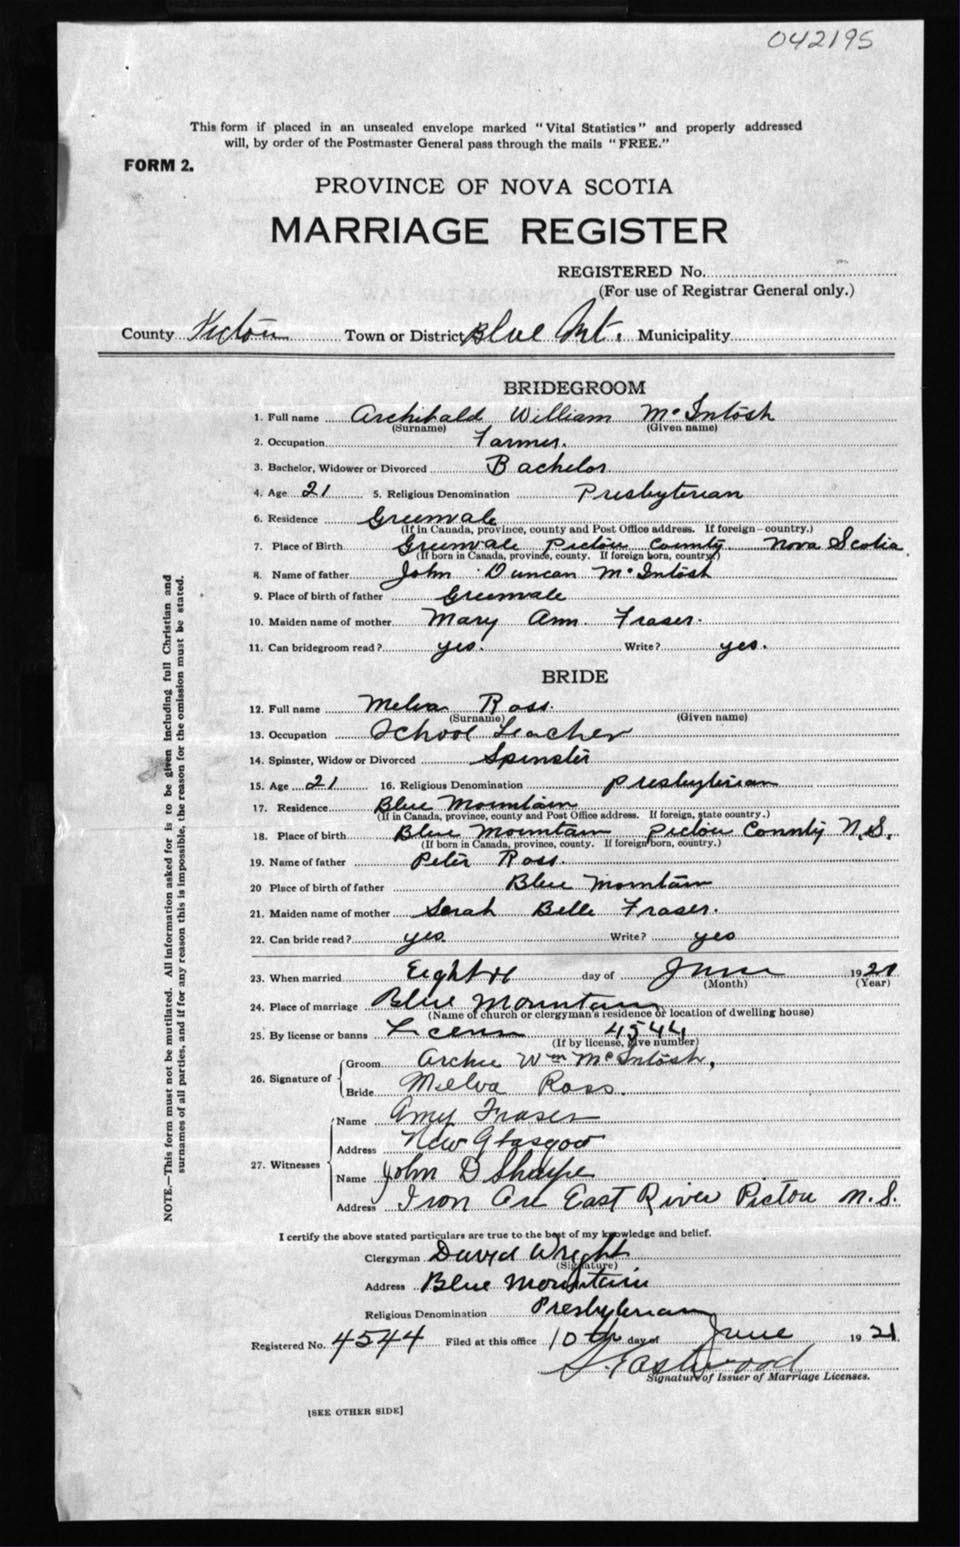 042195
This form if placed in an unsealed envelope marked "Vital Statistics" and properly addressed
will, by order of the Postmaster General pass through the mails "FREE."
FORM 2.
PROVINCE OF NOVA SCOTIA
MARRIAGE REGISTER
REGISTERED No.
(For use of Registrar General only.)
County Pictou Town or District Blue Mt. Municipality
BRIDEGROOM
1. Full name Archibald William McIntosh
(Surname) (Given name)
2. Occupation Farmer.
3. Bachelor, Widower or Divorced Bachelor
4. Age 21 5. Religious Denomination Presbyterian
6. Residence Greenvale
(If in Canada, province, county and Post Office address. If foreign country.)
7. Place of Birth Greenvale Pictou County Nova Scotia
(If born in Canada, province, county. If foreign born, country.)
8. Name of father John Duncan McIntosh
9. Place of birth of father Greenvale
10. Maiden name of mother Mary Ann Fraser.
11. Can bridegroom read? yes. Write? yes.
BRIDE
12. Full name Melva Ross.
(Surname) (Given name)
13. Occupation School Teacher
14. Spinster, Widow or Divorced Spinster
15. Age 21 16. Religious Denomination Presbyterian
17. Residence Blue Mountain
(If in Canada, province, county and Post Office address. If foreign, state country.)
18. Place of birth Blue Mountain Pictou County N.S.
(If born in Canada, province, county. If foreign born, country.)
19. Name of father Peter Ross.
20 Place of birth of father Blue Mountain
21. Maiden name of mother Sarah Belle Fraser.
22. Can bride read? yes Write? yes
23. When married Eighth day of June 1921
(Month) (Year)
24. Place of marriage Blue Mountain
(Name of church or clergyman's residence or location of dwelling house)
25. By license or banns License 4544
(If by license, give number)
26. Signature of Groom Archie Wm McIntosh,
Bride Melva Ross.
27. Witnesses Name Amy Fraser
Address New Glasgow
Name John D Sharpe
Address Iron Ore East River Pictou N.S.
I certify the above stated particulars are true to the best of my knowledge and belief.
Clergyman David Wright
(Signature)
Address Blue Mountain
Religious Denomination Presbyterian
Registered No. 4544 Filed at this office 10th day of June 1921
S. Eastwood
Signature of Issuer of Marriage Licenses.
[SEE OTHER SIDE]
NOTE.—This form must not be mutilated. All information asked for is to be given including full Christian and
surnames of all parties, and if for any reason this is impossible, the reason for the omission must be stated.